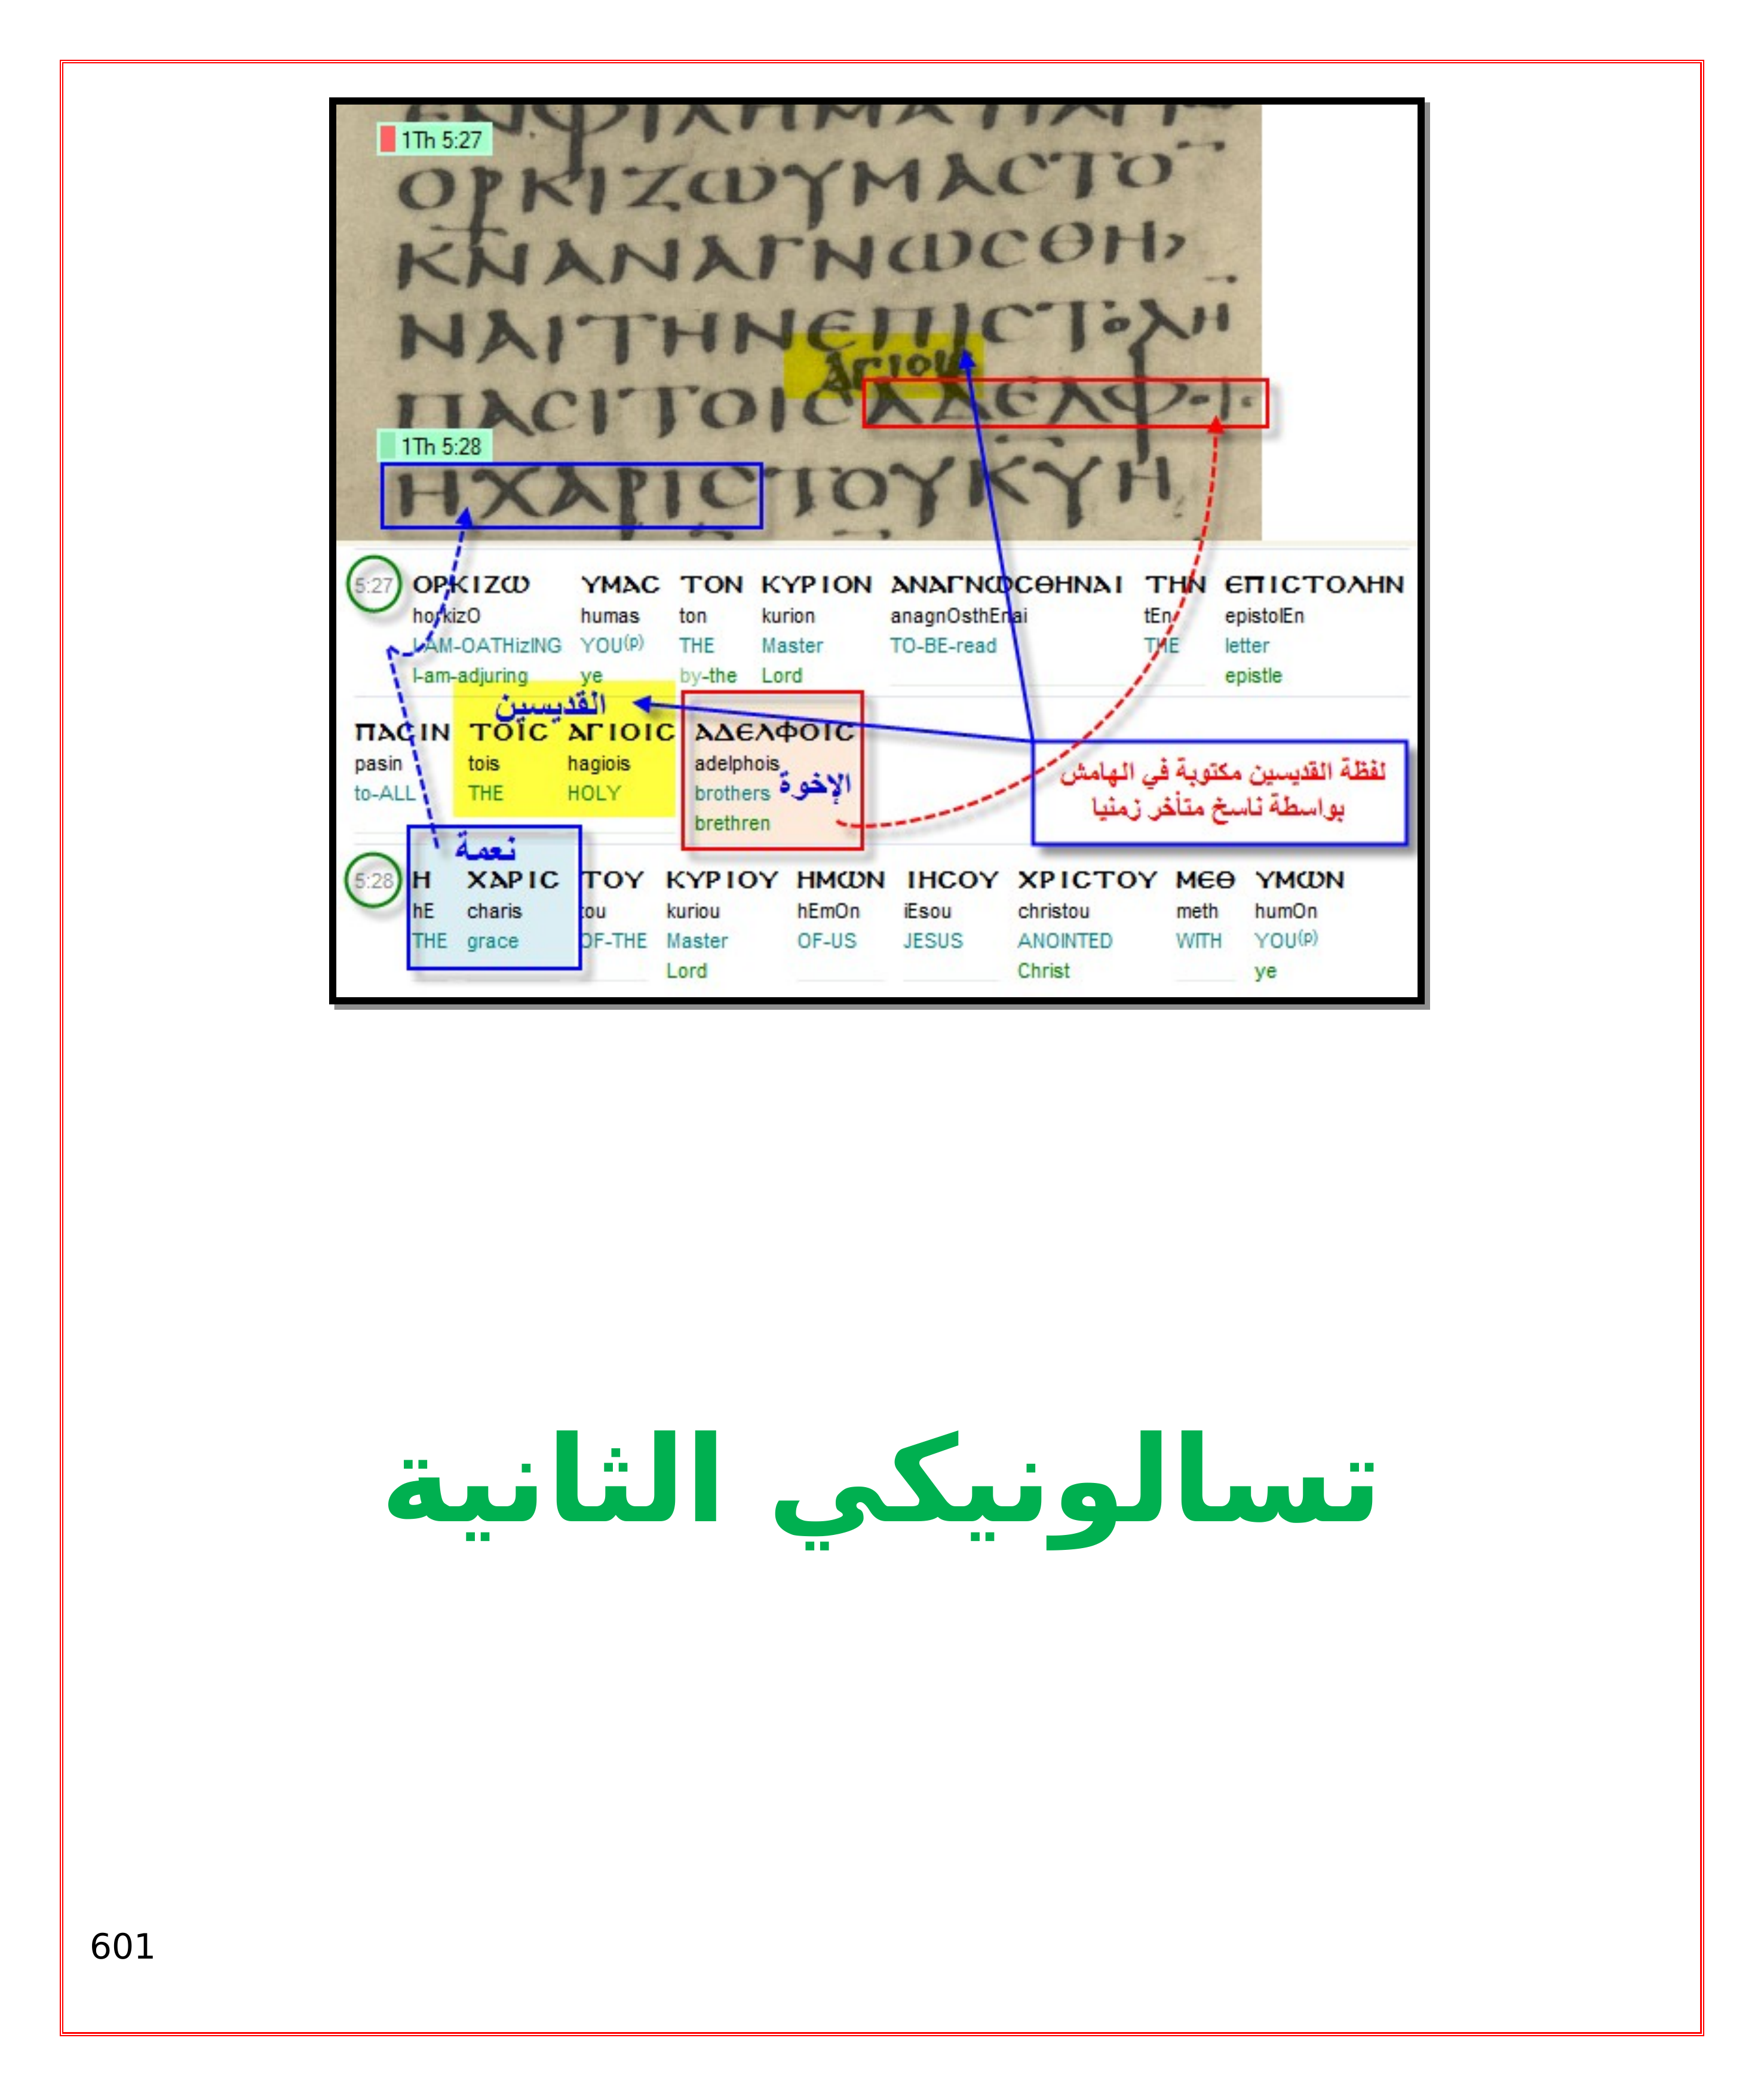 1Th 5:27
ΟΡΚΙΖωΥΜΑϹΤΟ
ΚΝΑΝΑΓΝωϹΘΗ>
ΝΑΙΤΗΝΕΠΙϹΤΟΛΗ
ΑΓΙΟΙϹ
ΠΑϹΙΤΟΙϹΑΔΕΛΦΟΙϹ
1Th 5:28
ΗΧΑΡΙϹΤΟΥΚΥΗ
5:27 ΟΡΚΙΖω ΥΜΑϹ ΤΟΝ ΚΥΡΙΟΝ ΑΝΑΓΝωϹΘΗΝΑΙ ΤΗΝ ΕΠΙϹΤΟΛΗΝ
horkizO humas ton kurion anagnOsthEnai tEn epistolEn
I-AM-OATHizING YOU(p) THE Master TO-BE-read THE letter
I-am-adjuring ye by-the Lord epistle
القديسين
ΠΑϹΙΝ ΤΟΙϹ ΑΓΙΟΙϹ ΑΔΕΛΦΟΙϹ
pasin tois hagiois adelphois
to-ALL THE HOLY brothers الإخوة
brethren
لفظة القديسين مكتوبة في الهامش
بواسطة ناسخ متأخر زمنيا
نعمة
5:28 Η ΧΑΡΙϹ ΤΟΥ ΚΥΡΙΟΥ ΗΜωΝ ΙΗϹΟΥ ΧΡΙϹΤΟΥ ΜΕΘ ΥΜωΝ
hE charis tou kuriou hEmOn iEsou christou meth humOn
THE grace OF-THE Master OF-US JESUS ANOINTED WITH YOU(p)
Lord Christ ye
تسالونيكي الثانية
601